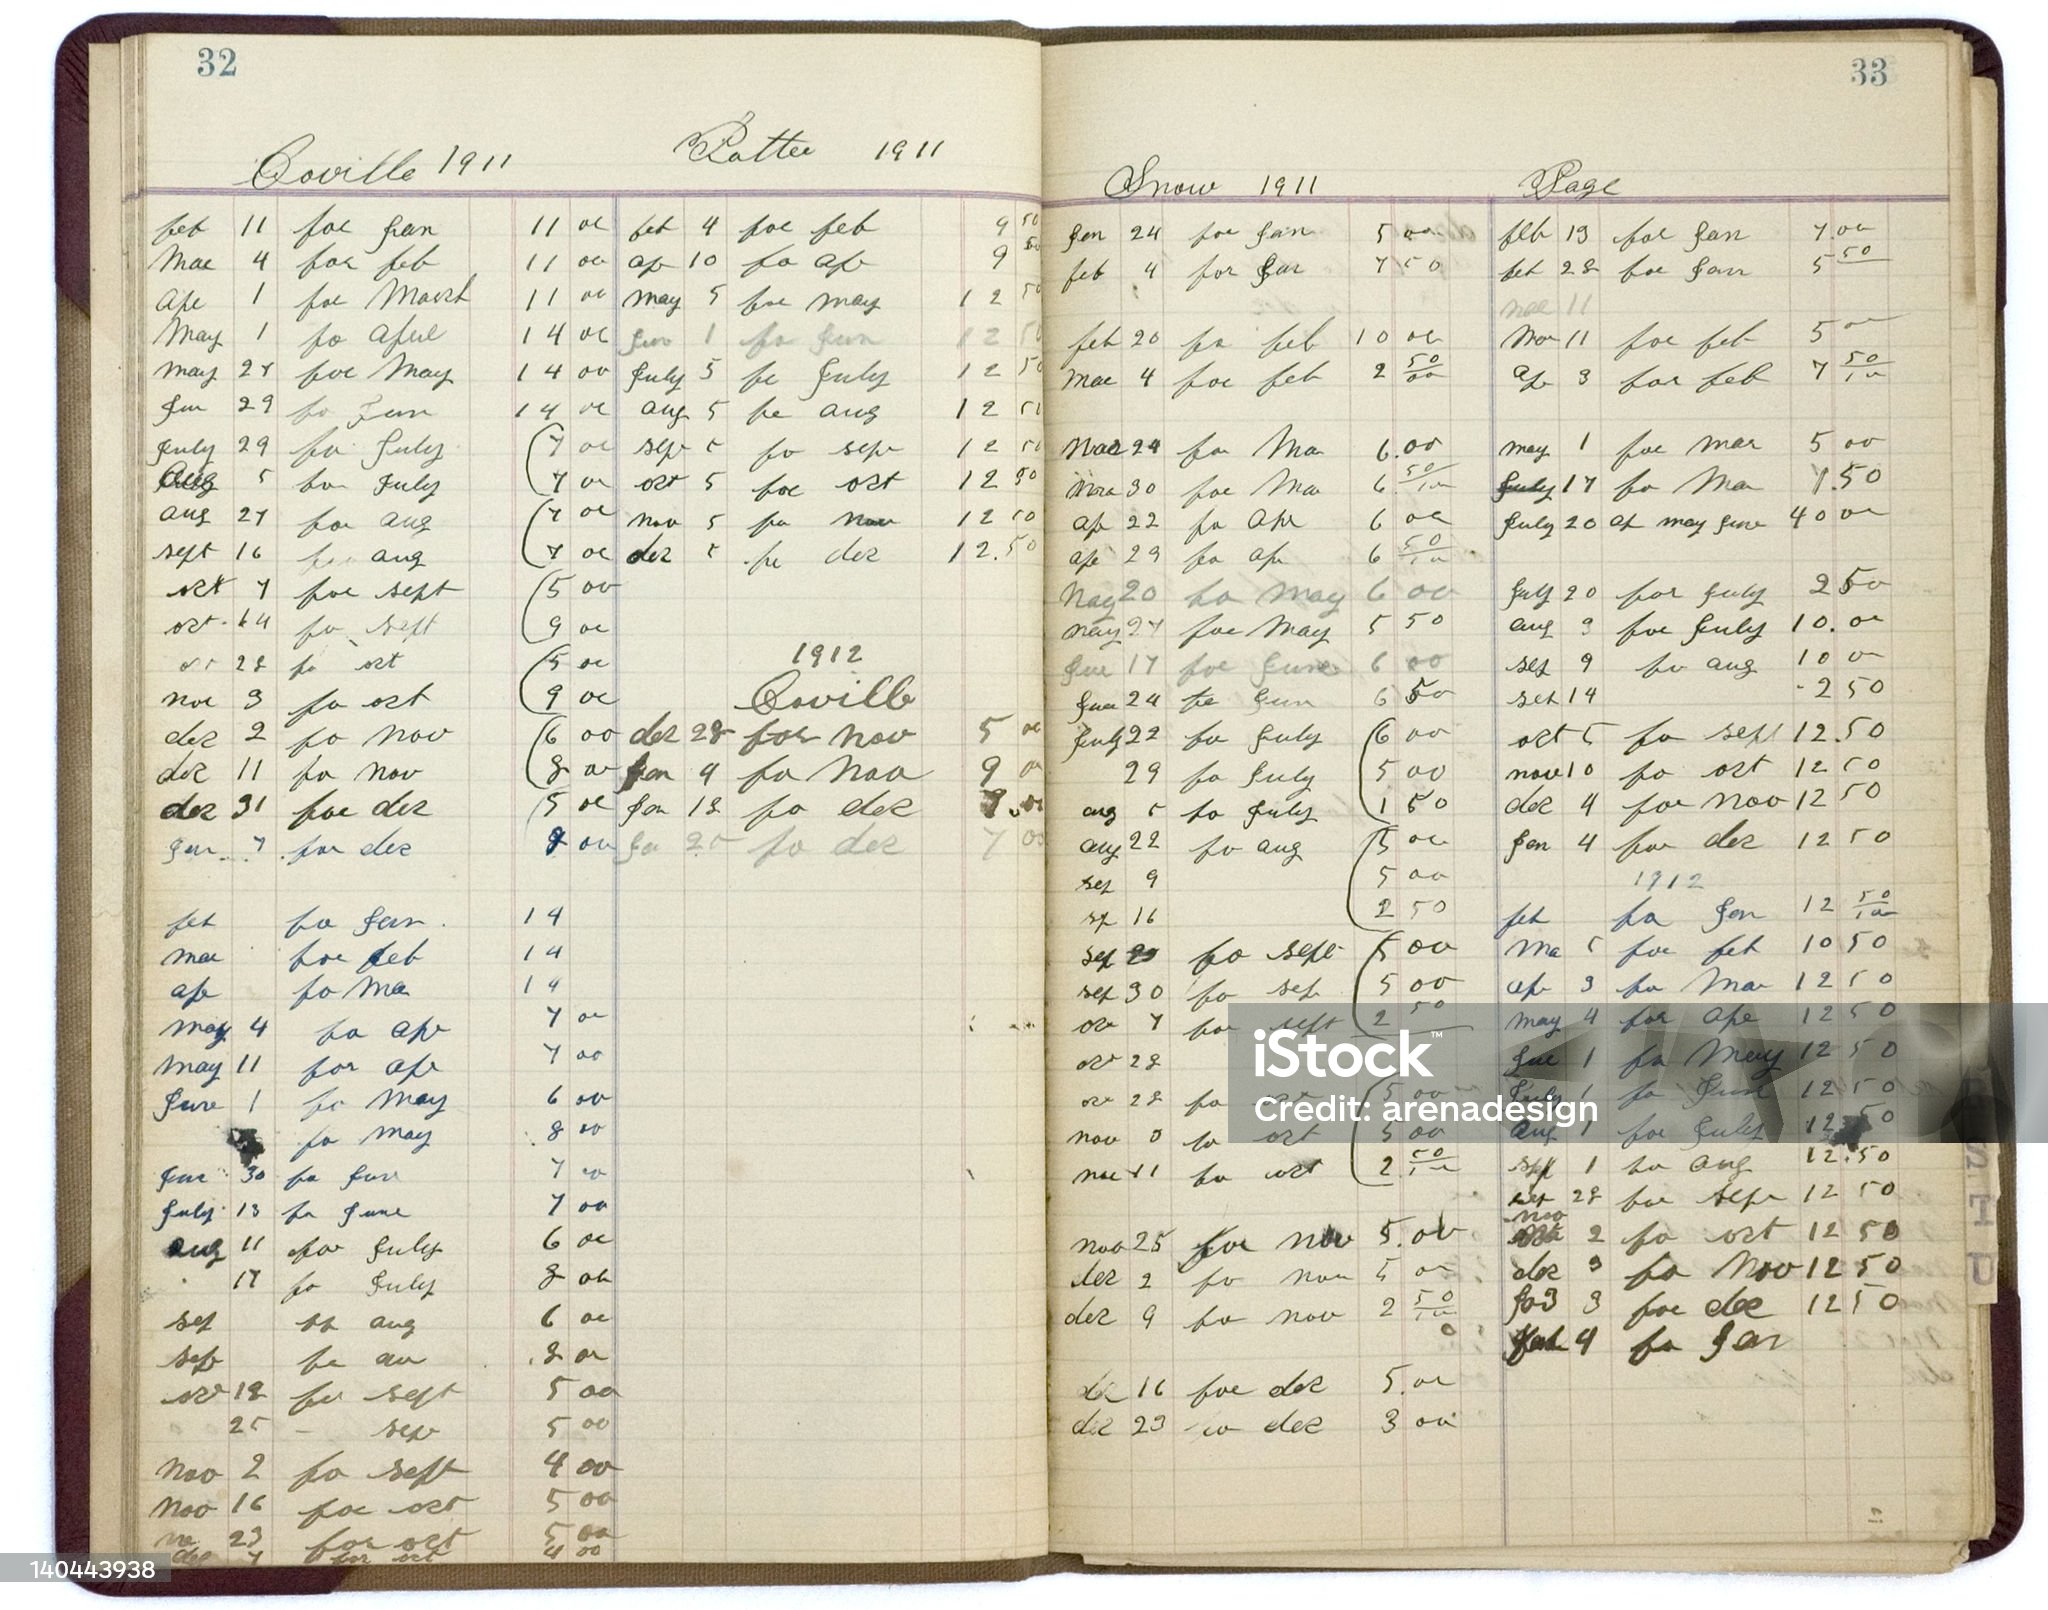 32
Coville 1911
feb 11 for Jan 11 00
Mar 4 for feb 11 00
Apr 1 for March 11 00
May 1 fo April 14 00
May 27 for May 14 00
Jun 29 fo Jun 14 00
July 29 fo July 7 00
Aug 5 for July 7 00
aug 27 for aug 7 00
sept 16 aug 7 00
oct 7 for sept 5 00
oct 14 fo sept 9 00
28 fo oct 5 00
nov 3 fo oct 9 00
dec 2 fo nov 6 00
dec 11 fo nov 8 00
dec 31 for dec 5 00
Jan 7 for dec 9 00
feb fo Jan 14
mar for feb 14
apr fo Mar 14
May 4 fo apr 7 00
May 11 for apr 7 00
June 1 fo May 6 00
fo May 8 00
Jun 30 fo Jun 7 00
July 13 fo June 7 00
aug 11 for July 6 00
17 fo July 8 00
sep aug 6 00
sep fo 8 00
oct 18 for sept 5 00
25 - sep 5 00
Nov 2 fo sept 4 00
Nov 16 for oct 5 00
23 for oct 5 00
dec 7 for oct 4 00
Potter 1911
feb 4 for feb 9 50
ap 10 fo ap 9 50
May 5 for May 12 50
Jun 1 fo Jun 12 50
July 5 fo July 12 50
aug 5 fo aug 12 50
sep 5 fo sep 12 50
oct 5 for oct 12 50
nov 5 fo nov 12 50
dec 5 fo dec 12.50
1912
Coville
dec 28 for Nov 5 00
Jan 4 fo Nov 9 00
Jan 18 fo dec 7.00
Ja 25 fo dec 7 00
33
Snow 1911
Jan 24 for Jan 5 00
feb 4 for Jan 7 50
feb 20 fo feb 10 00
Mar 4 for feb 2 50/00
Mar 24 fo Mar 6.00
Mar 30 for Mar 6 50/00
ap 22 fo Apr 6 00
ap 29 fo apr 6 50/00
May 20 fo May 6 00
May 27 for May 5 50
Jun 17 for June 6 00
Jun 24 fo Jun 6 50
July 22 fo July 6 00
29 fo July 5 00
aug 5 fo July 1 50
aug 22 fo aug 5 00
sep 9 5 00
sep 16 2 50
sep 23 fo sept 5 00
sep 30 fo sep 5 00
oct 7 for sept 2 50
oct 28
oct 28 fo 5 00
nov fo oct 5 00
nov 11 fo oct 2 50/00
nov 25 for nov 5.00
dec 2 fo nov 5 00
dec 9 fo nov 2 50/00
dec 16 for dec 5.00
dec 23 fo dec 3 00
Page
feb 13 for Jan 7.00
feb 28 for Jan 5 50
mar 11
Mar 11 for feb 5 00
Ap 3 for feb 7 50/00
may 1 for mar 5 00
July 17 fo Mar 7.50
July 20 ap may June 40 00
July 20 for July 2 50
aug 9 for July 10.00
sep 9 fo aug 10 0
sep 14 2 50
oct 5 fo sept 12.50
nov 10 fo oct 12 50
dec 4 for Nov 12 50
Jan 4 for dec 12 50
1912
feb fo Jan 12 50/00
Mar 5 for feb 10 50
ap 3 fo Mar 12 50
May 4 for Apr 12 50
Jun 1 fo May 12 50
July 1 fo June 12 50
Aug 1 for July 12 50
Sep 1 fo aug 12.50
28 for sep 12 50
nov
2 fo oct 12 50
dec 3 fo Nov 12 50
3 for dec 12 50
4 fo Jan
iStock™
Credit: arenadesign
140443938